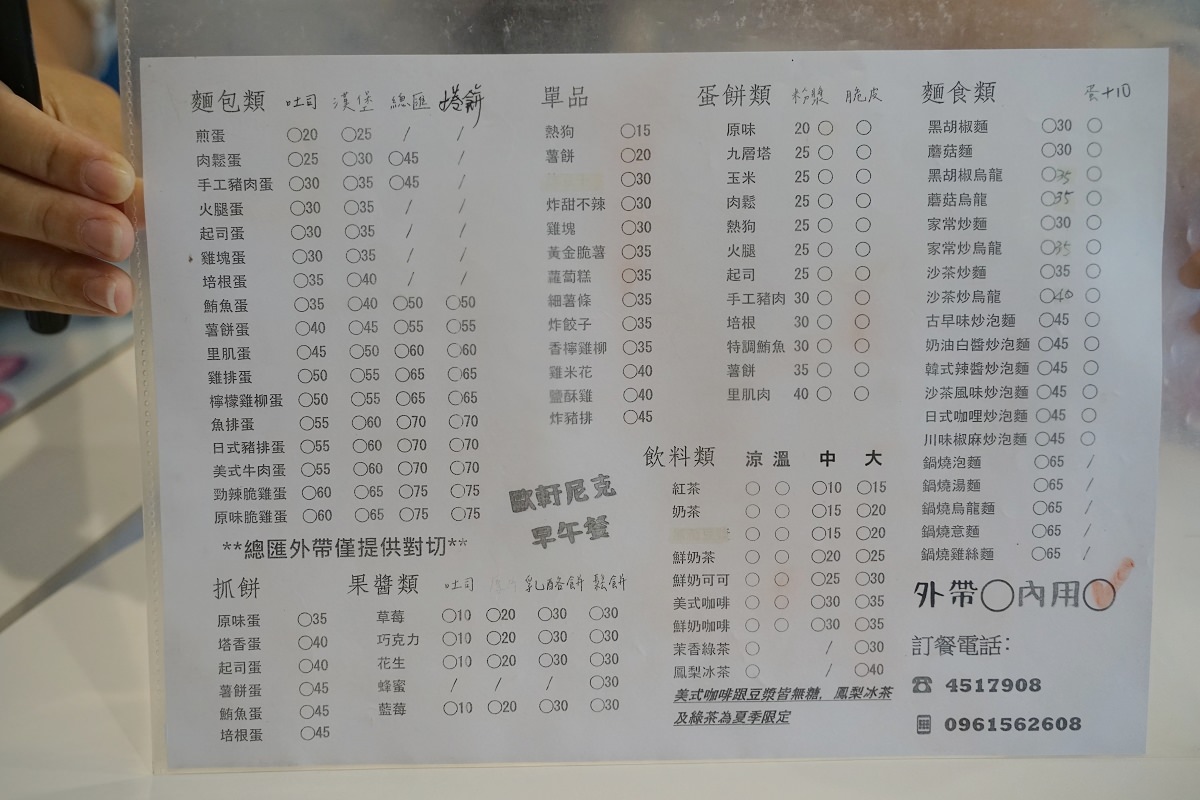 麵包類 吐司 漢堡 總匯 塔餅
煎蛋 ○20 ○25 / /
肉鬆蛋 ○25 ○30 ○45 /
手工豬肉蛋 ○30 ○35 ○45 /
火腿蛋 ○30 ○35 / /
起司蛋 ○30 ○35 / /
雞塊蛋 ○30 ○35 / /
培根蛋 ○35 ○40 / /
鮪魚蛋 ○35 ○40 ○50 ○50
薯餅蛋 ○40 ○45 ○55 ○55
里肌蛋 ○45 ○50 ○60 ○60
雞排蛋 ○50 ○55 ○65 ○65
檸檬雞柳蛋 ○50 ○55 ○65 ○65
魚排蛋 ○55 ○60 ○70 ○70
日式豬排蛋 ○55 ○60 ○70 ○70
美式牛肉蛋 ○55 ○60 ○70 ○70
勁辣脆雞蛋 ○60 ○65 ○75 ○75
原味脆雞蛋 ○60 ○65 ○75 ○75
**總匯外帶僅提供對切**
抓餅
原味蛋 ○35
塔香蛋 ○40
起司蛋 ○40
薯餅蛋 ○45
鮪魚蛋 ○45
培根蛋 ○45
果醬類 吐司 乳酪餅 鬆餅
草莓 ○10 ○20 ○30 ○30
巧克力 ○10 ○20 ○30 ○30
花生 ○10 ○20 ○30 ○30
蜂蜜 / / / ○30
藍莓 ○10 ○20 ○30 ○30
單品
熱狗 ○15
薯餅 ○20
○30
炸甜不辣 ○30
雞塊 ○30
黃金脆薯 ○35
蘿蔔糕 ○35
細薯條 ○35
炸餃子 ○35
香檸雞柳 ○35
雞米花 ○40
鹽酥雞 ○40
炸豬排 ○45
歐軒尼克
早午餐
蛋餅類 粉漿 脆皮
原味 20 ○ ○
九層塔 25 ○ ○
玉米 25 ○ ○
肉鬆 25 ○ ○
熱狗 25 ○ ○
火腿 25 ○ ○
起司 25 ○ ○
手工豬肉 30 ○ ○
培根 30 ○ ○
特調鮪魚 30 ○ ○
薯餅 35 ○ ○
里肌肉 40 ○ ○
飲料類 涼 溫 中 大
紅茶 ○ ○ ○10 ○15
奶茶 ○ ○ ○15 ○20
○ ○ ○15 ○20
鮮奶茶 ○ ○ ○20 ○25
鮮奶可可 ○ ○ ○25 ○30
美式咖啡 ○ ○ ○30 ○35
鮮奶咖啡 ○ ○ ○30 ○35
茉香綠茶 ○ / ○30
鳳梨冰茶 ○ / ○40
美式咖啡跟豆漿皆無糖，鳳梨冰茶
及綠茶為夏季限定
麵食類 蛋+10
黑胡椒麵 ○30 ○
蘑菇麵 ○30 ○
黑胡椒烏龍 ○35 ○
蘑菇烏龍 ○35 ○
家常炒麵 ○30 ○
家常炒烏龍 ○35 ○
沙茶炒麵 ○35 ○
沙茶炒烏龍 ○40 ○
古早味炒泡麵 ○45 ○
奶油白醬炒泡麵 ○45 ○
韓式辣醬炒泡麵 ○45 ○
沙茶風味炒泡麵 ○45 ○
日式咖哩炒泡麵 ○45 ○
川味椒麻炒泡麵 ○45 ○
鍋燒泡麵 ○65 /
鍋燒湯麵 ○65 /
鍋燒烏龍麵 ○65 /
鍋燒意麵 ○65 /
鍋燒雞絲麵 ○65 /
外帶○內用○
訂餐電話：
☎ 4517908
0961562608